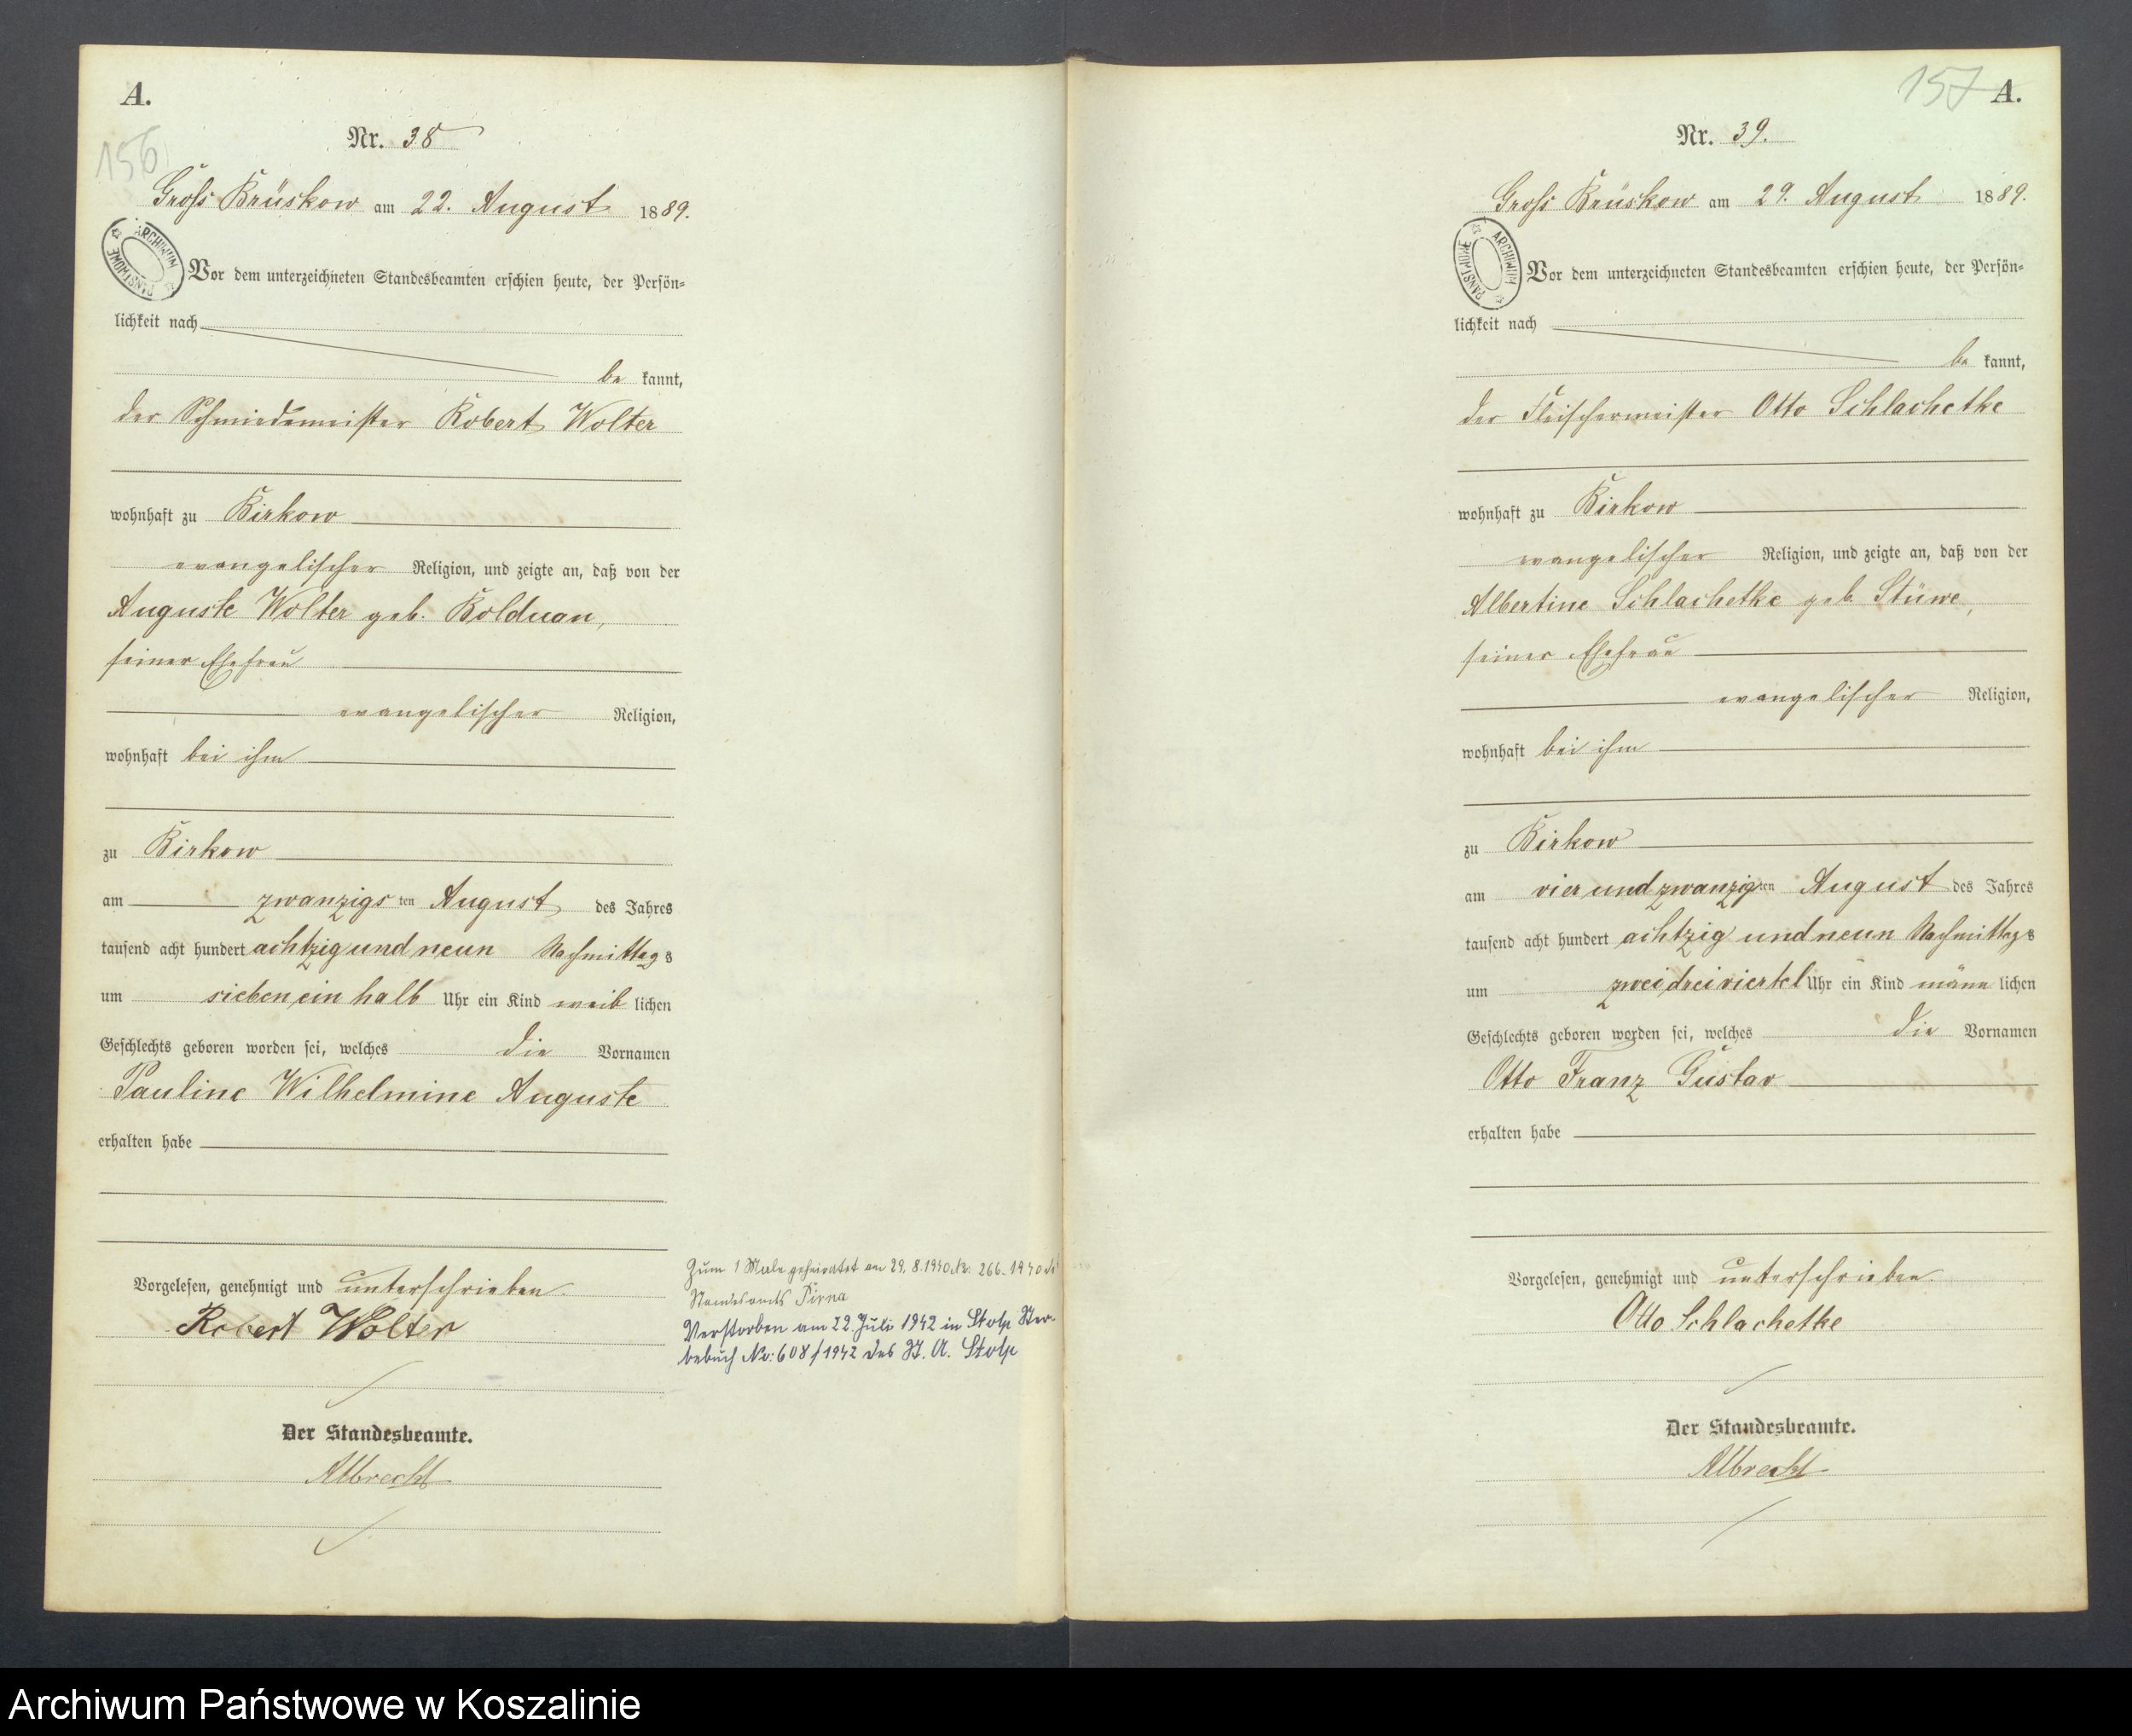 A.
156
Nr. 38
Groß Brüskow am 22. August 1889.
ARCHIWUM PAŃSTWOWE
Vor dem unterzeichneten Standesbeamten erschien heute, der Persön-
lichkeit nach
be kannt,
der Schmiedemeister Robert Wolter
wohnhaft zu Birkow
evangelischer Religion, und zeigte an, daß von der
Auguste Wolter geb. Bolduan,
seiner Ehefrau
evangelischer Religion,
wohnhaft bei ihm
zu Birkow
am zwanzigs ten August des Jahres
tausend acht hundert achtzig und neun Nachmittag s
um sieben ein halb Uhr ein Kind weib lichen
Geschlechts geboren worden sei, welches die Vornamen
Pauline Wilhelmine Auguste
erhalten habe
Vorgelesen, genehmigt und unterschrieben.
Robert Wolter
Der Standesbeamte.
Albrecht
Zum 1 Male geheiratet am 29. 8. 1940 Nr. 266-1940 d.
Standesamts Pirna
Verstorben am 22. Juli 1942 in Stolp Ster-
bebuch Nr: 608/1942 des St. A. Stolp
157 A.
Nr. 39.
Groß Brüskow am 29. August 1889.
ARCHIWUM PAŃSTWOWE
Vor dem unterzeichneten Standesbeamten erschien heute, der Persön-
lichkeit nach
be kannt,
der Fleischermeister Otto Schlachetke
wohnhaft zu Birkow
evangelischer Religion, und zeigte an, daß von der
Albertine Schlachetke geb. Stüwe,
seiner Ehefrau
evangelischer Religion,
wohnhaft bei ihm
zu Birkow
am vier und zwanzig ten August des Jahres
tausend acht hundert achtzig und neun Nachmittag s
um zwei dreiviertel Uhr ein Kind männ lichen
Geschlechts geboren worden sei, welches die Vornamen
Otto Franz Gustav
erhalten habe
Vorgelesen, genehmigt und unterschrieben.
Otto Schlachetke
Der Standesbeamte.
Albrecht
Archiwum Państwowe w Koszalinie